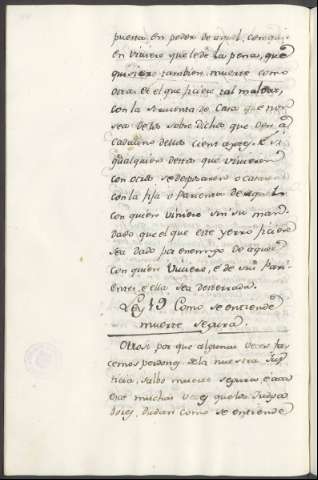 puesta en poder de aquel, con quien
en viviere que le de la pena, que
quisiere tambien muerte como
otra: et el que ficiere tal maldad,
con la sirvienta de Casa que non
sea de las sobre dichas que den a
cada uno dellos cient azotes. E si
qualquiera destos que vivieren
con otros se desposaren o casaren
con la fija o Parienta de aquel
con quien viviere sin su man-
dado que el que este yerro ficiere
sea dado por enemigo de aquel
con quien viviere, e de sus Pari-
entes, e ella sea desterrada.
Ley 49 Como se entiende
muerte segura.
Otrosi por que algunas veces fa-
cemos perdones de la nuestra Jus-
ticia, salbo muerte segura, e aca-
ece muchas veces que los Judga-
dores, dudan como se entiende